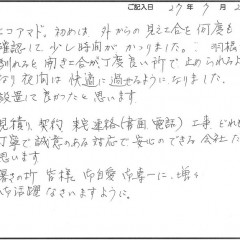 ご記入日 27年7月2
エコアマド。初めは 外からの 見え工合を何度も
確認して 少し時間が かかりました。: 羽根
馴れると 開き工合が丁度良い所で 止められるよ
なり 夜間は 快適に過せるようになりました。
設置して 良かったと 思います。
見積り、契約 来宅連絡(書面、電話) 工事 どれも
丁寧で 誠意のある対応で 安心のできる 会社だ
思います
暑さの折 皆様 御自愛 専一に、増々
御活躍 なさいますように。